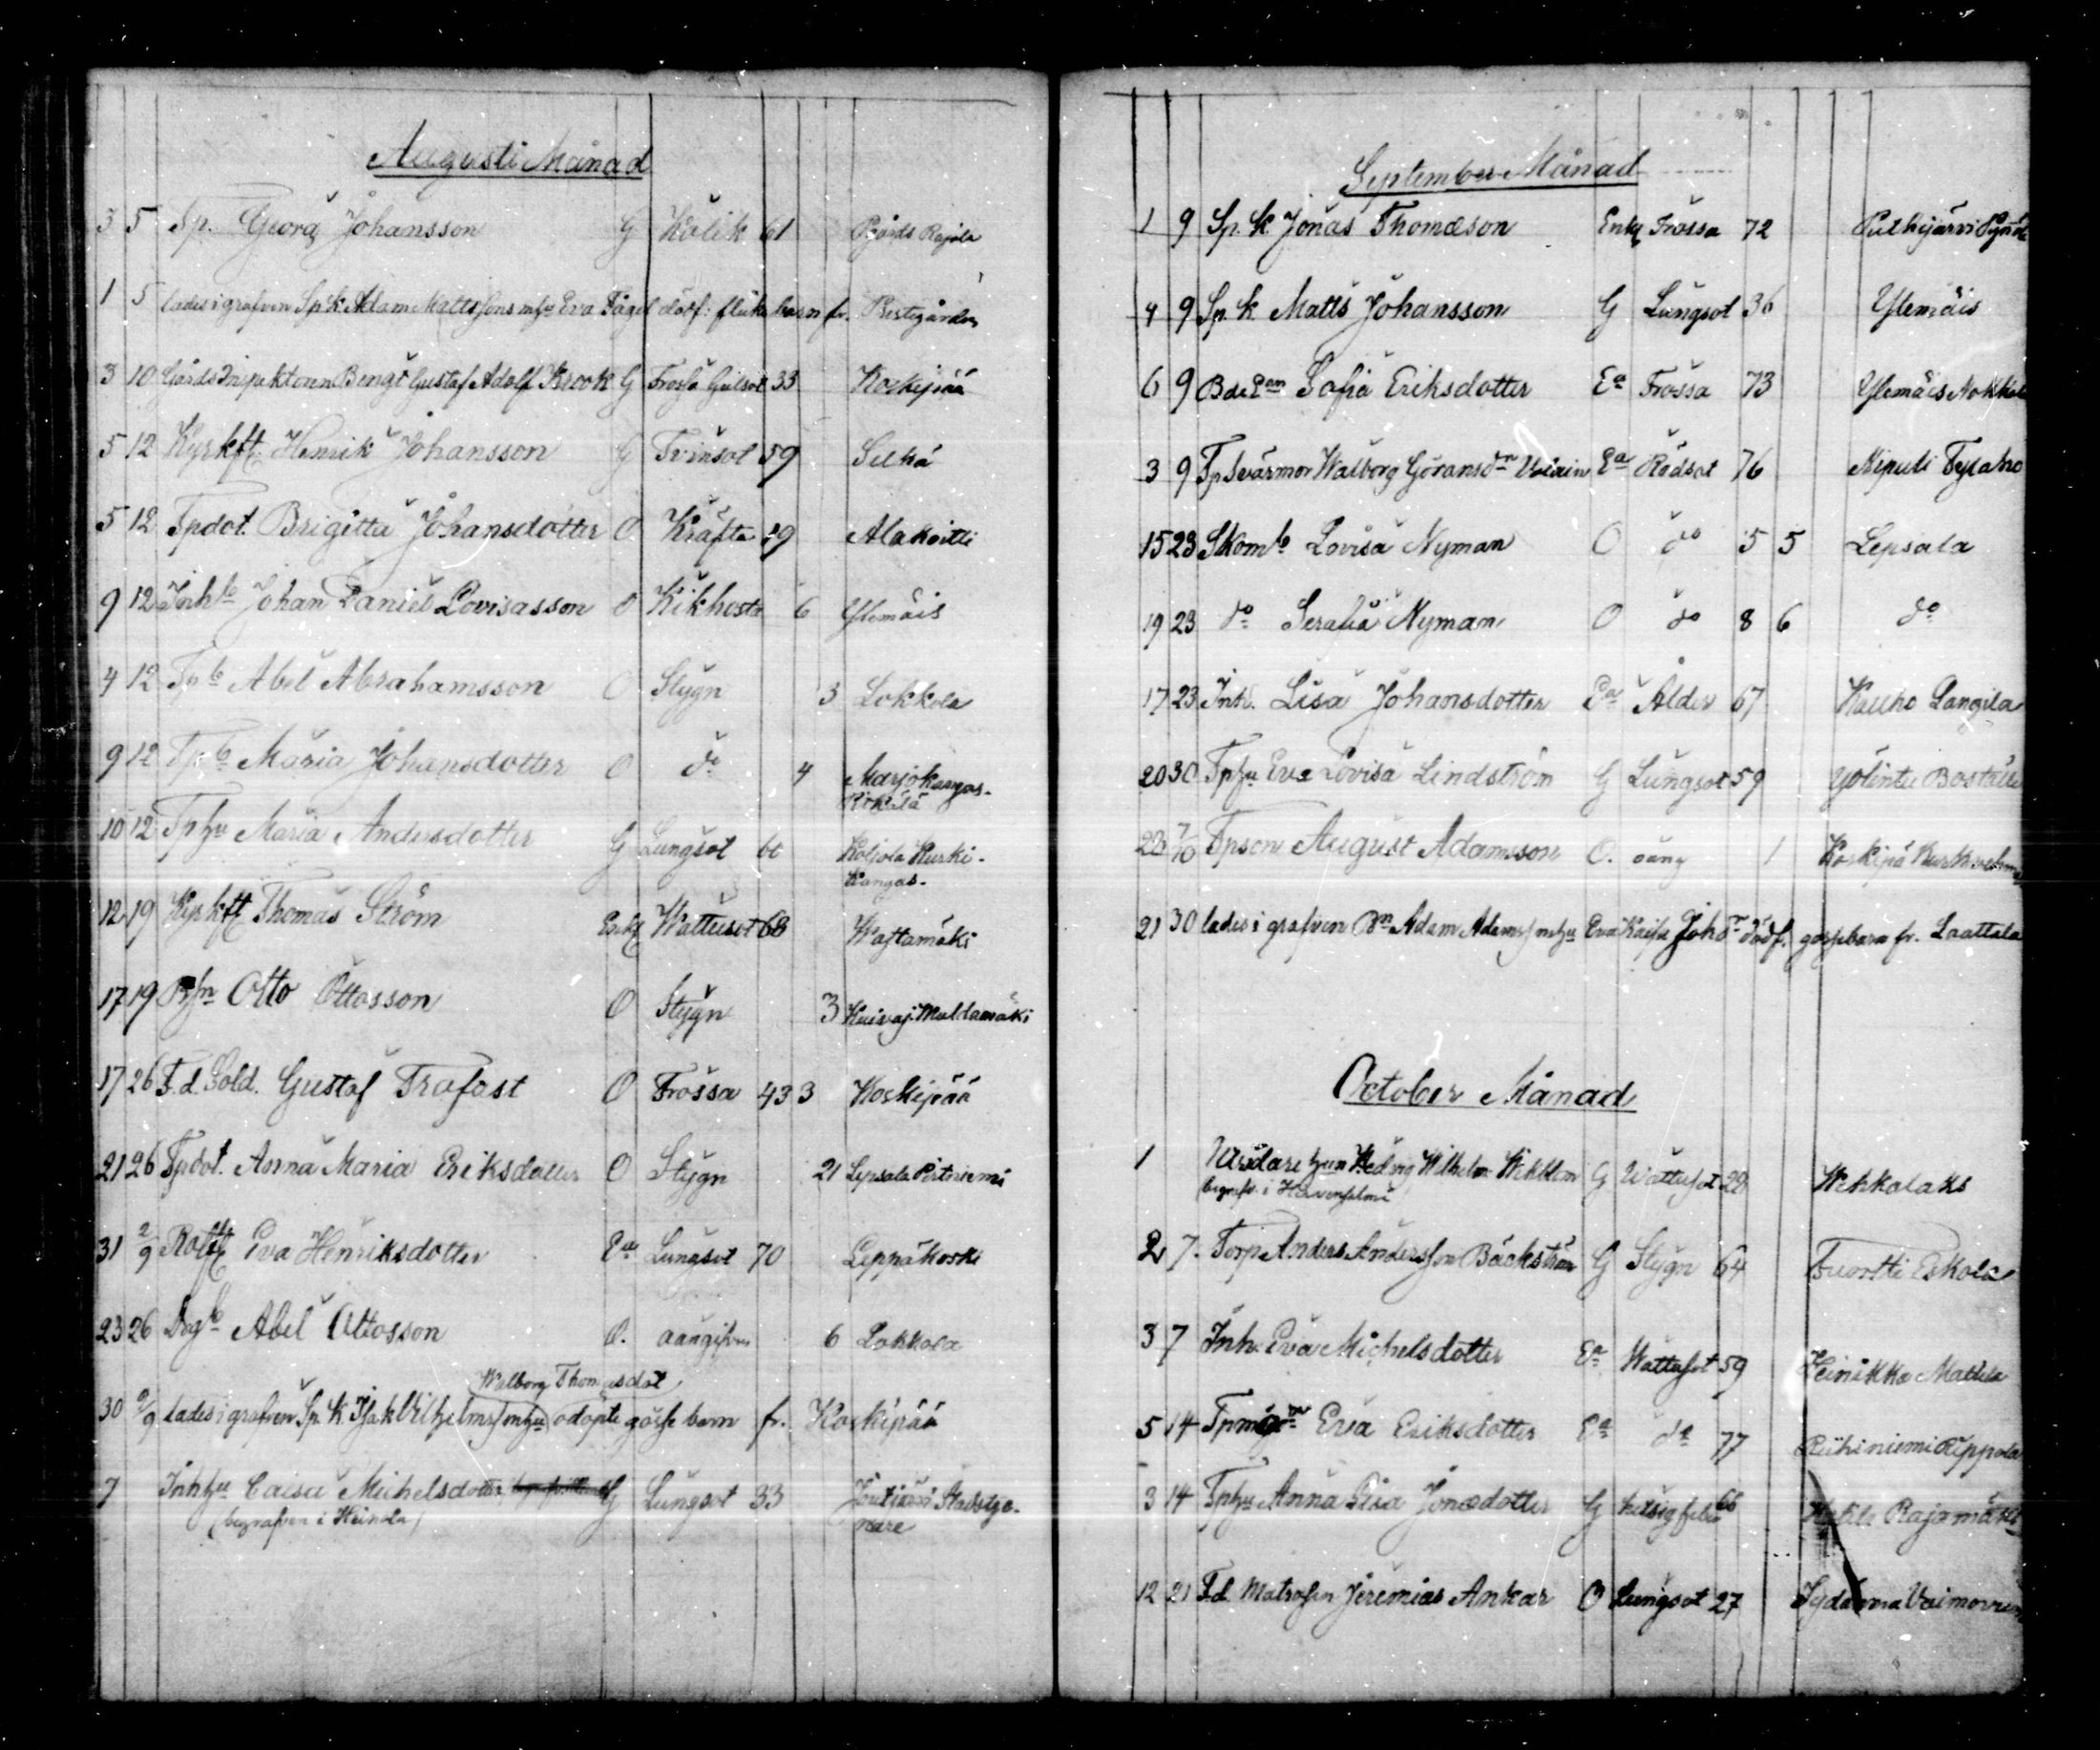 Augusti Månad
3 5 Tp. Georg Johansson G Kolik 61 Pjärds Rajala
1 5 lades i grafven Sp. k. Adam Mattssons mhu Eva Fågel dödf: flickebarn fr. Prestgården
3 10 Gårds Inspektoren Bengt Gustaf Adolf Krook G Frossa Gulsot 33 Koskipää
5 12 Kyrkft. Henrik Johansson G Tvinsot 59 Selhä
5 12 Tpdot. Brigitta Johansdotter O Kräfta 29 Alakoitti
9 12 Inh b Johan Daniel Lovisasson O Kikhosta 6 Ylemäis
4 12 Tp b Abel Abrahamsson O Slygn 3 Lokkola
9 12 Tp b Maria Johansdotter O do 4 Marjokangas-
Pikälä
10 12 Tphu Maria Andersdotter G Lungsot 60 Koljola Kurki-
kangas.
12 19 Kyrkft Thomas Ström Enkl Wattusot 68 Wajtamäki
17 19 Bsn Otto Ottosson O Slygn 3 Kuivaj. Muldamäki
17 26 F.d. Sold. Gustaf Trofast O Frossa 43 3 Koskipää
21 26 Tpdot. Anna Maria Eriksdotter O Slygn 21 Lepsala Pirtniemi
31 2/9 Rotft Eva Henriksdotter Ea Lungsot 70 Leppäkoski
23 26 Drg b Abel Ottosson O. oangifven 6 Lokkola
Walborg Thomasdot
30 2/9 lades i grafven Sp. K. Isak Vilhelmss mhu odöpte gosse barn fr. Koskipää
7 Inhhu Caisa Michelsdotter G Lungsot 33 Joutjärvi Stadstje-
(begrafven i Heinola) nare
September Månad
1 9 Sp. k. Jonas Thomæson Enkl Frossa 72 Putkijärvi
4 9 Sp. k. Matts Johansson G Lungsot 36 Ylemäis
6 9 Bde Ean Sofia Eriksdotter Ea Frossa 73 Ylemäis Nokkala
3 9 Tp Svärmor Walborg Göransdr Ea Rödsot 76 Niputi
15 23 Skom b Lovisa Nyman O do 5 5 Lepsala
19 23 do Serafia Nyman O do 8 6 do
17 23 Inh. Lisa Johansdotter Ea Ålder 67 Kauho Pangila
20 30 Tphu Eva Lovisa Lindström G Lungsot 59 Yölintu Boställe
28 7/10 Tpson August Adamsson O. oang 1 Koskipä
21 30 lades i grafven Bn Adam Adamss mhu Eva Kaisa Johsdr dödf. gossebarn fr. Laattala
October Månad
1 Wärdare hun Hedvig Wilhelm. G Wattusot 28 Wehkalaks
begrafv. i
2 7. Torp. Anders Andersson Bäckström G Slygn 64 Tuortti Eskola
3 7 Inh. Eva Michelsdotter Ea Wattusot 59 Heinikka Mattila
5 14 Eva Eriksdotter Ea do 77 Riihiniemi Rippola
3 14 Tphu Anna Lisa Jonædotter G hetsig feber 66 Rajamäki
12 21 F.d. Matrosen Jeremias Ankar O Lungsot 27